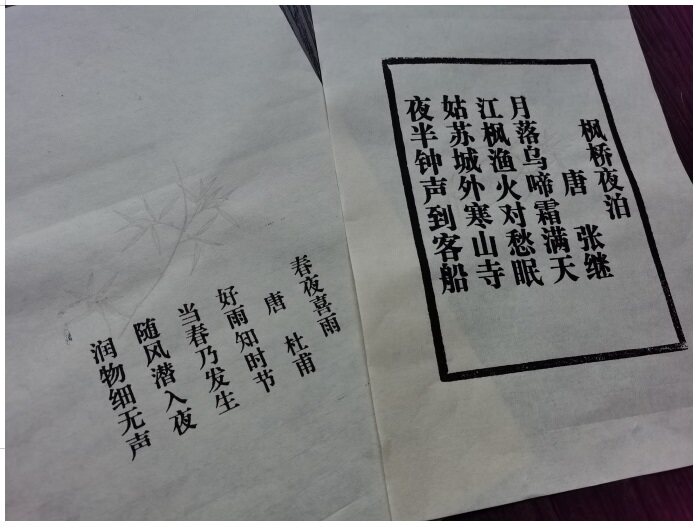 枫桥夜泊
唐 张继
月落乌啼霜满天
江枫渔火对愁眠
姑苏城外寒山寺
夜半钟声到客船
春夜喜雨
唐 杜甫
好雨知时节
当春乃发生
随风潜入夜
润物细无声